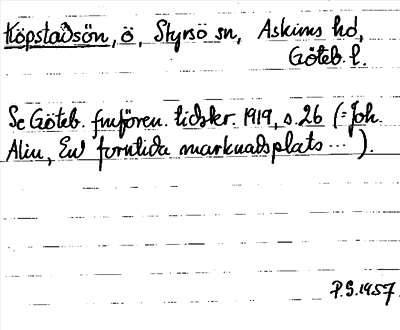 Köpstadsön, ö, Styrsö sn, Askims hd,
Göteb. l.
Se Göteb. fmfören. tidskr. 1919, s. 26 (= Joh.
Alin, En forntida marknadsplats ... ).
P.S. 1957.